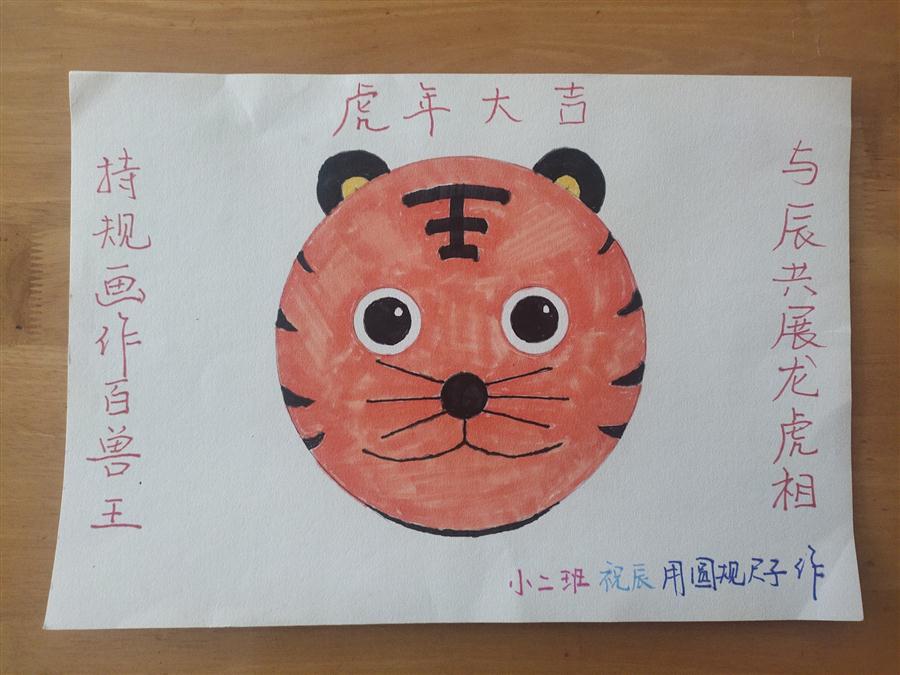 虎年大吉
与辰共展龙虎相
持规画作百兽王
小二班 祝辰 用圆规尺子作